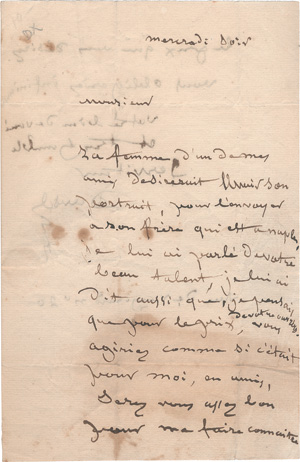 mercredi soir
Monsieur
La femme d'un de mes
amis desirerait avoir son
portrait, pour l'envoyer
a son frère qui est a naples,
je lui ai parlé de votre
beau talent, je lui ai
dit aussi que, je pensais
que pour le prix, de votre ouvrage, vous
agiriez comme si c'était
pour moi, en amis,
Serez vous assez bon
pour me faire connaitre